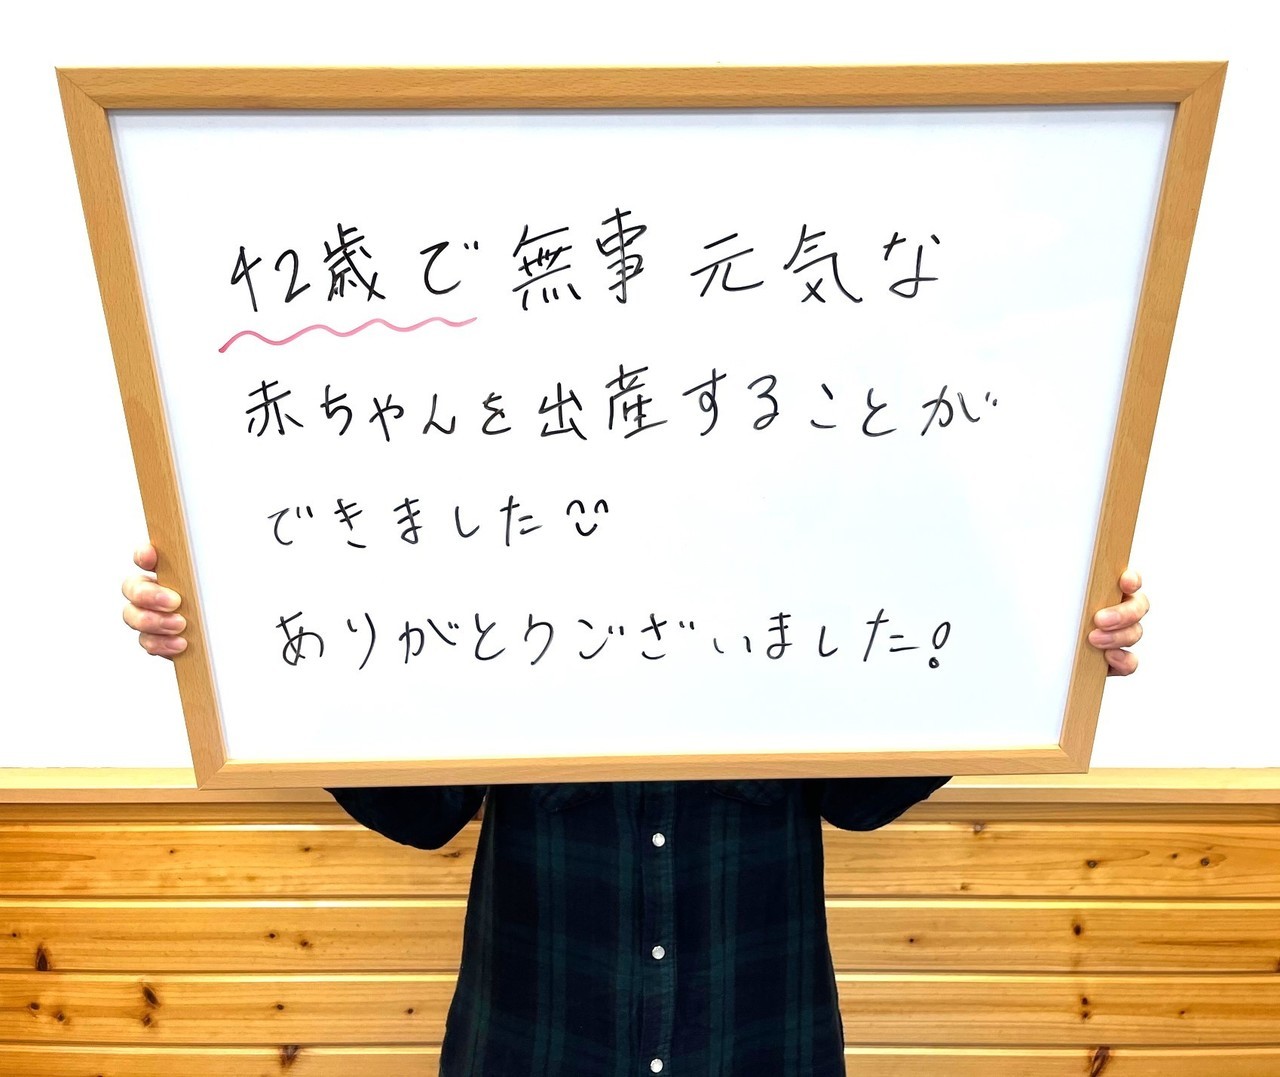 42歳で無事元気な
赤ちゃんを出産することが
できました
ありがとうございました!